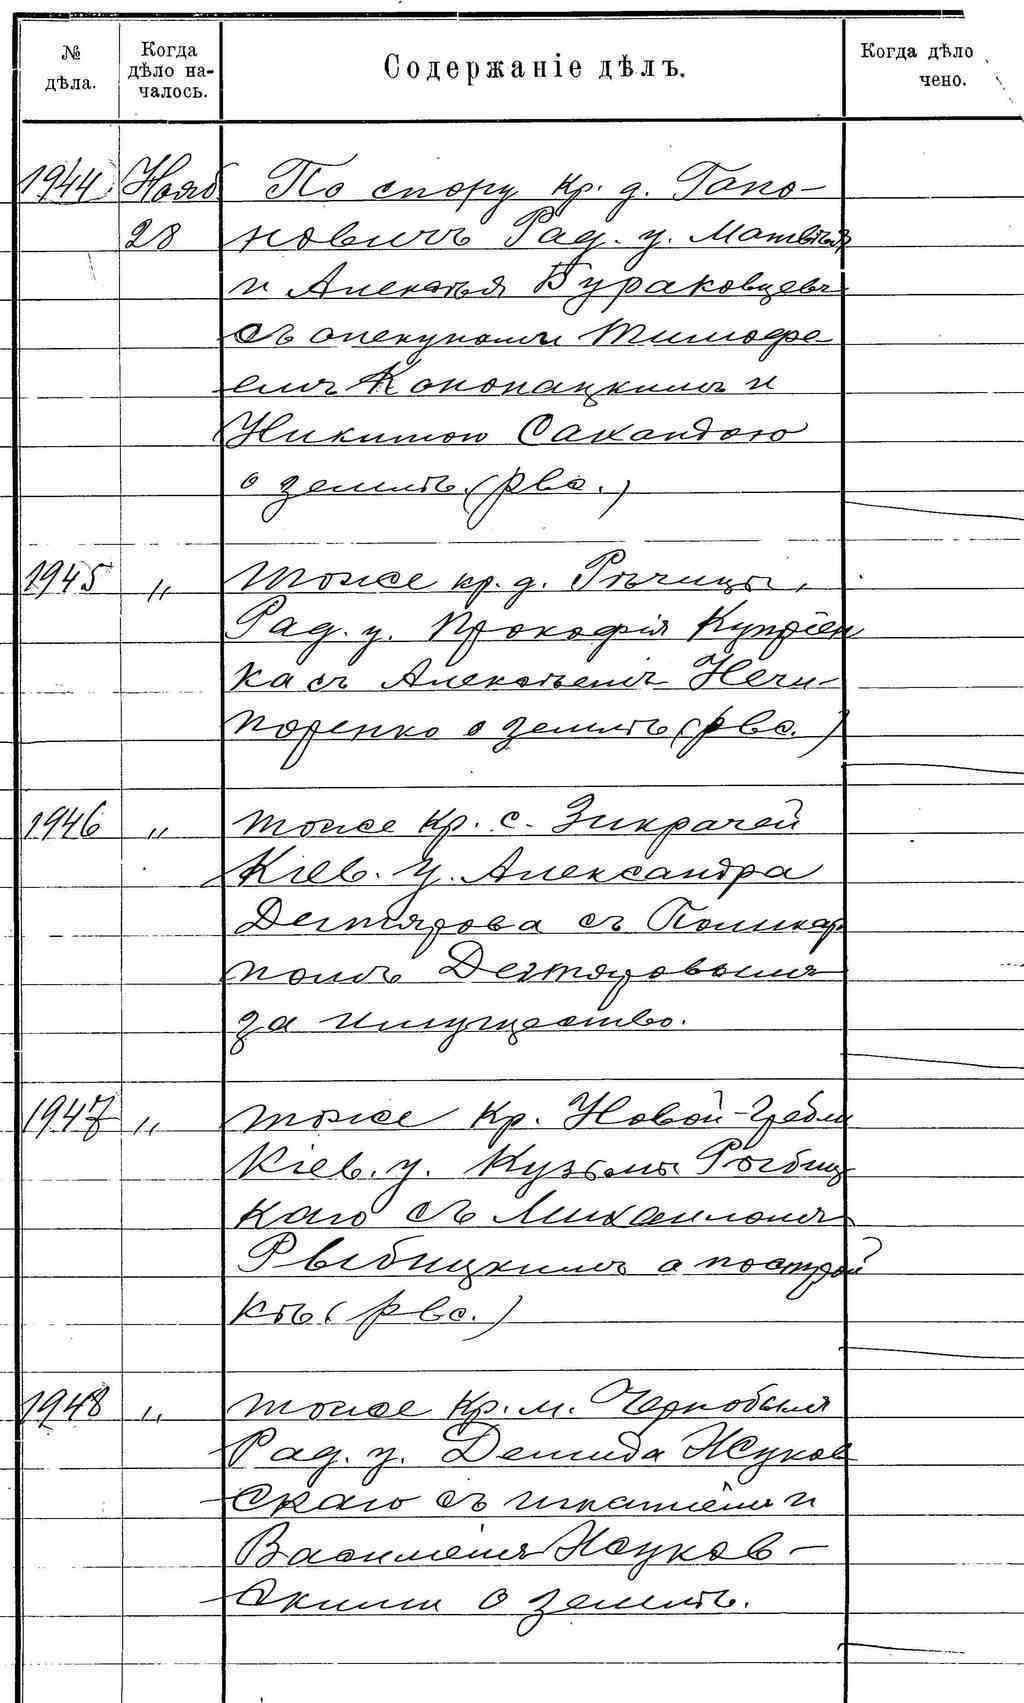 № дѣла.
Когда дѣло началось.
Содержаніе дѣлъ.
Когда дѣло
чено.
1944 Нояб По спору кр. д. Гапо-
28 новичъ Рад. у. Матвѣя
и Алексѣя Бураковцевъ
съ опекунами Тимофе-
емъ Конопацкимъ и
Никитою Сакандою
о землѣ. (рвс.)
1945 „ тоже кр. д. Рѣчицы,
Рад. у. Прокофія Купріен
ка съ Алексѣемъ Нечи-
поренко о землѣ (рвс.)
1946 „ тоже кр. с. Зикрачей
Кіев. у. Александра
Дегтярова съ Поликар
помъ Дегтяровымъ
за имущество.
1947 „ тоже кр. Новой-Гребли
Кіев. у. Кузьмы Рыбиц
каго съ Михаиломъ
Рыбицкимъ о построй
кѣ (рвс.)
1948 „ тоже кр. м. Чернобыля
Рад. у. Демида Жуков
скаго съ Игнатіемъ и
Василіемъ Жуков-
скими о землѣ.